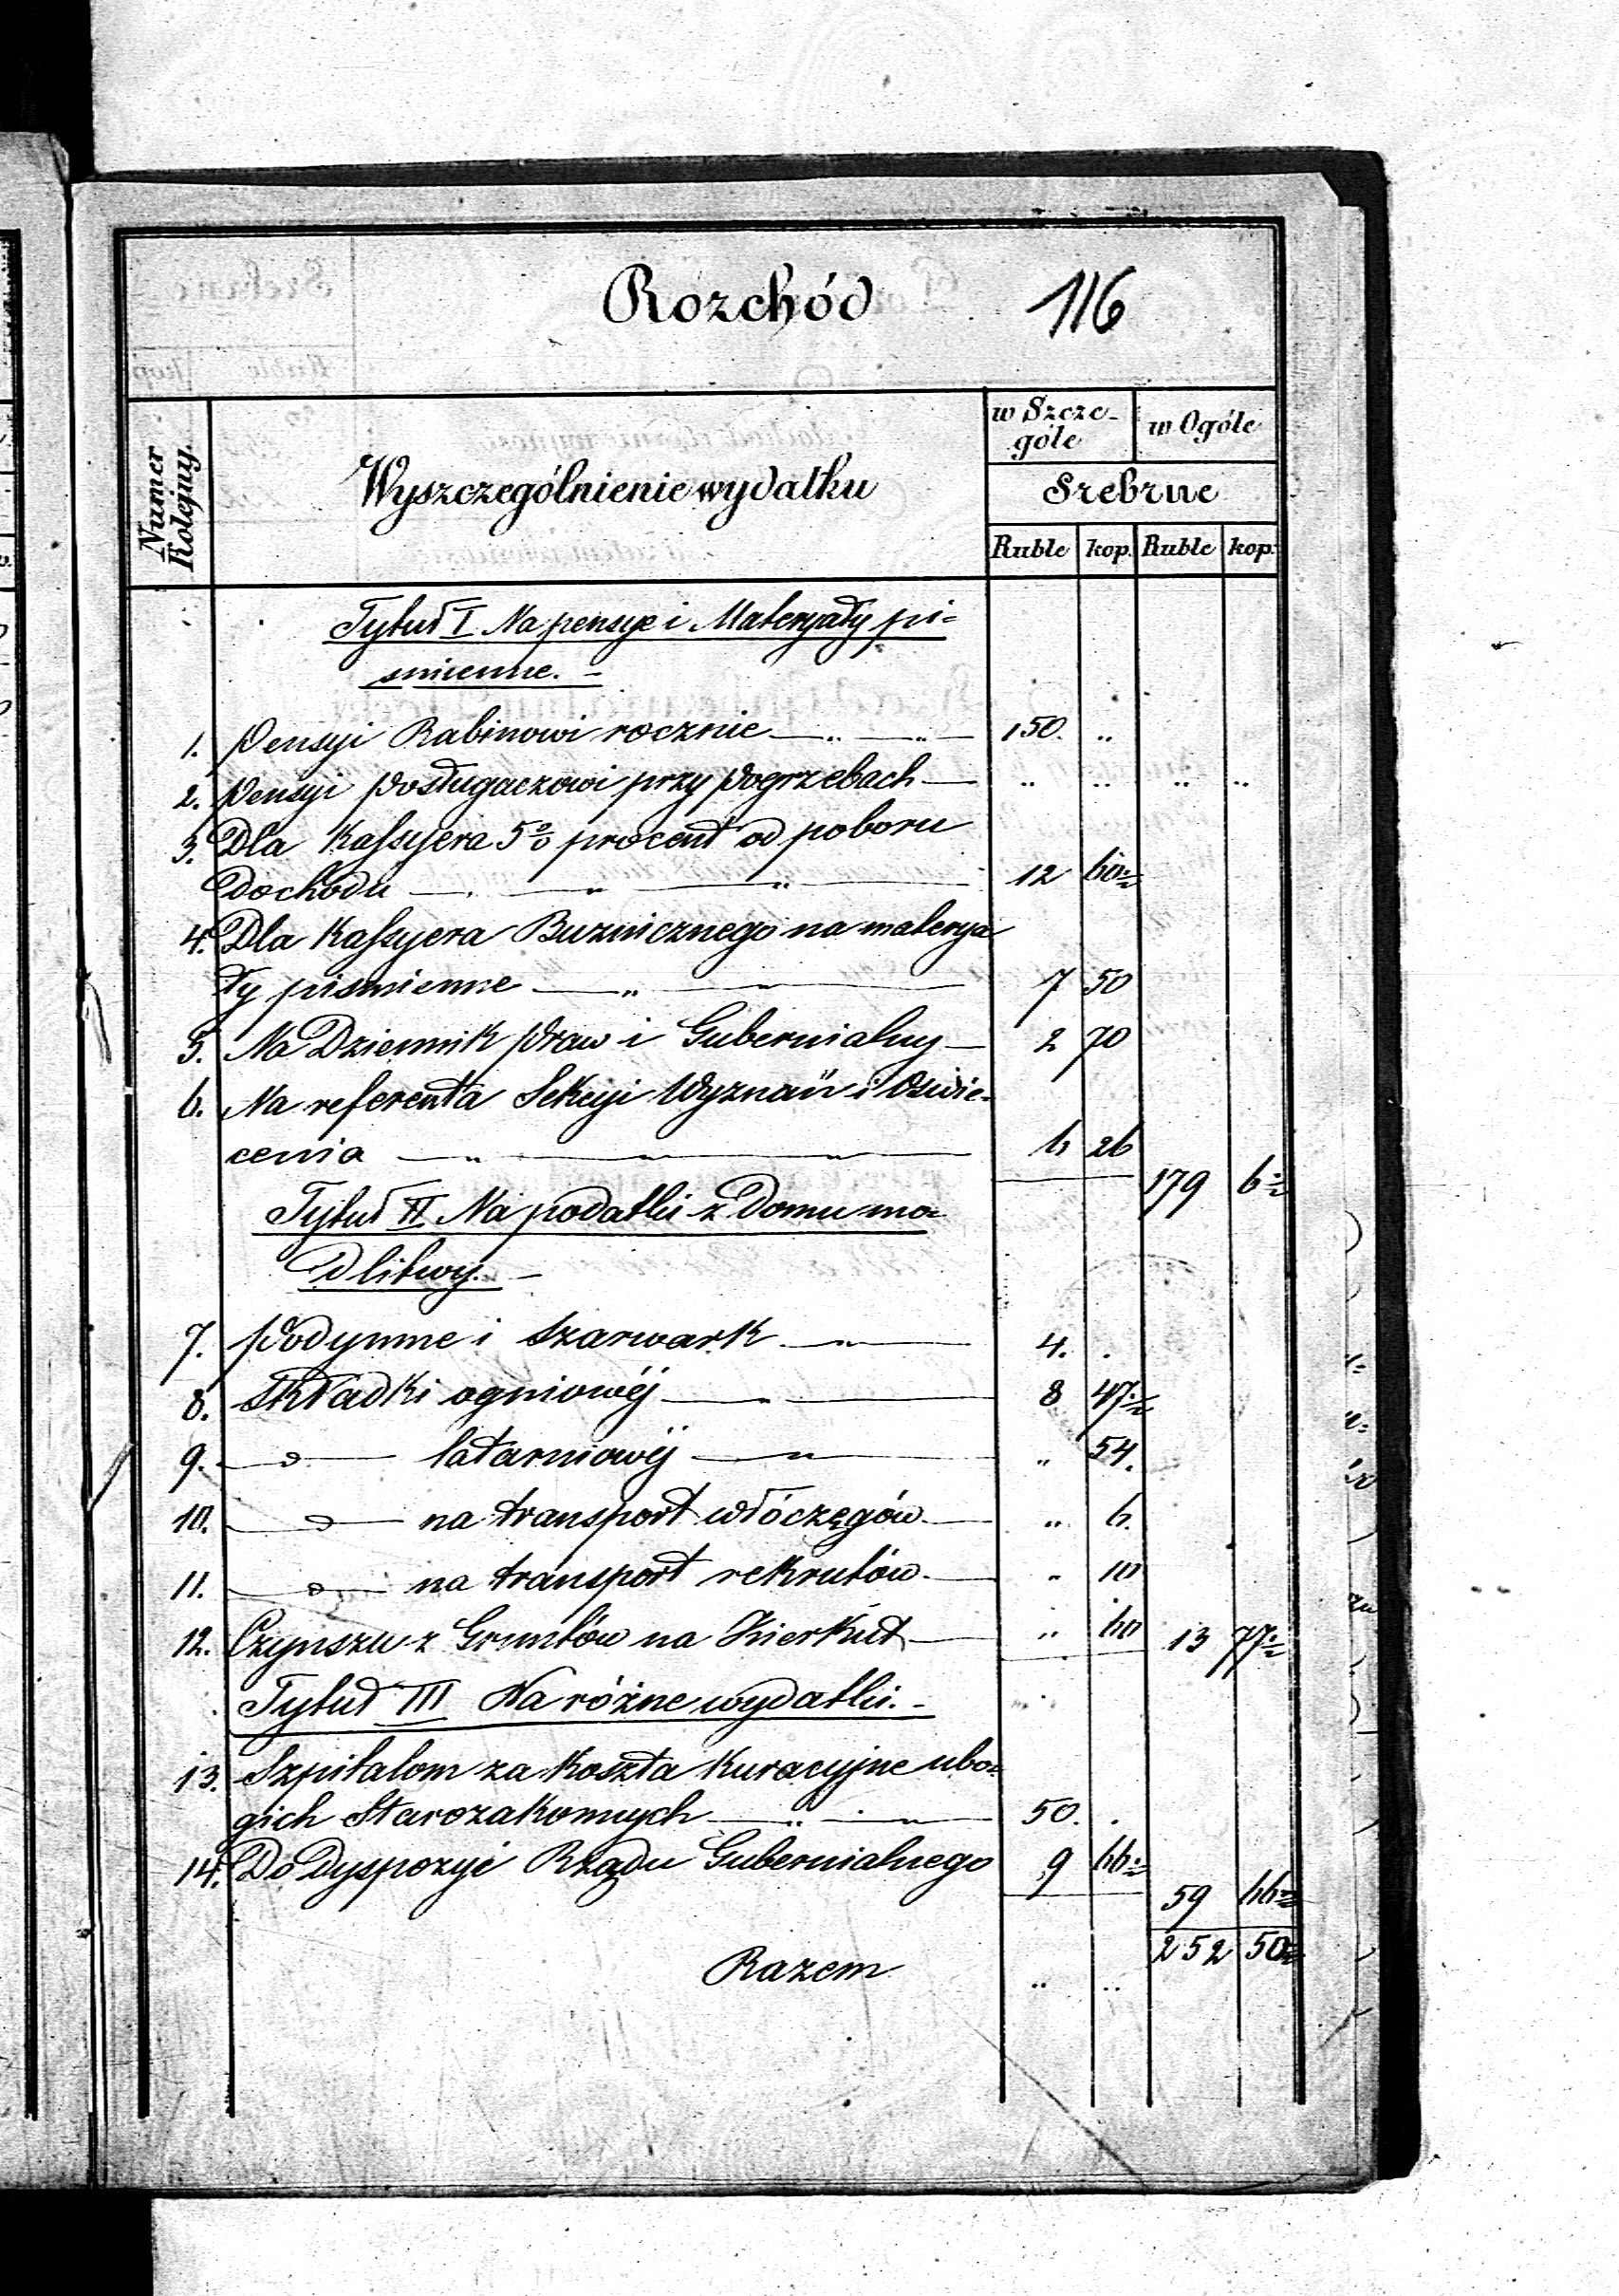 Rozchód 116
Numer Kolejny.
Wyszczególnienie wydatku
w Szcze-
góle
w Ogóle
Srebrne
Ruble kop. Ruble kop.
Tytuł I Na pensye i Materyały pi=
smienne. -
1. Pensyi Rabinowi rocznie — „ — „ — 150. „
2. Pensyi Posługaczowi przy Pogrzebach — „ „ „ „
3. Dla Kassyera 5% procent od poboru
Dochodu — „ — „ — 12 60½
4. Dla Kassyera Buznicznego na materya
ły pismienne — „ — 7 50
5. Na Dziennik Praw i Gubernialny — 2 70
6. Na referenta Sekcyi Wyznań i Oświe-
cenia — „ — 6 26
179 6½
Tytuł II Na podatki z Domu mo=
dlitwy. -
7. Podymne i Szarwark — „ — 4. .
8. Składki ogniowéj — „ — 8 47½
9. — „ — latarniowéj — „ — „ 54.
10. — „ — na transport włóczęgów — „ 6.
11. — „ — na transport rekrutów — „ 10
12. Czynszu z Gruntów na Kierkut — „ 60 13 77½
Tytuł III Na różne wydatki. -
13. Szpitalom za koszta kuracyjne ubo=
gich Starozakonnych — „ — „ — 50. .
14. Do dyspozyi Rządu Gubernialnego 9 66½
59 66½
Razem „ „ 252 50½